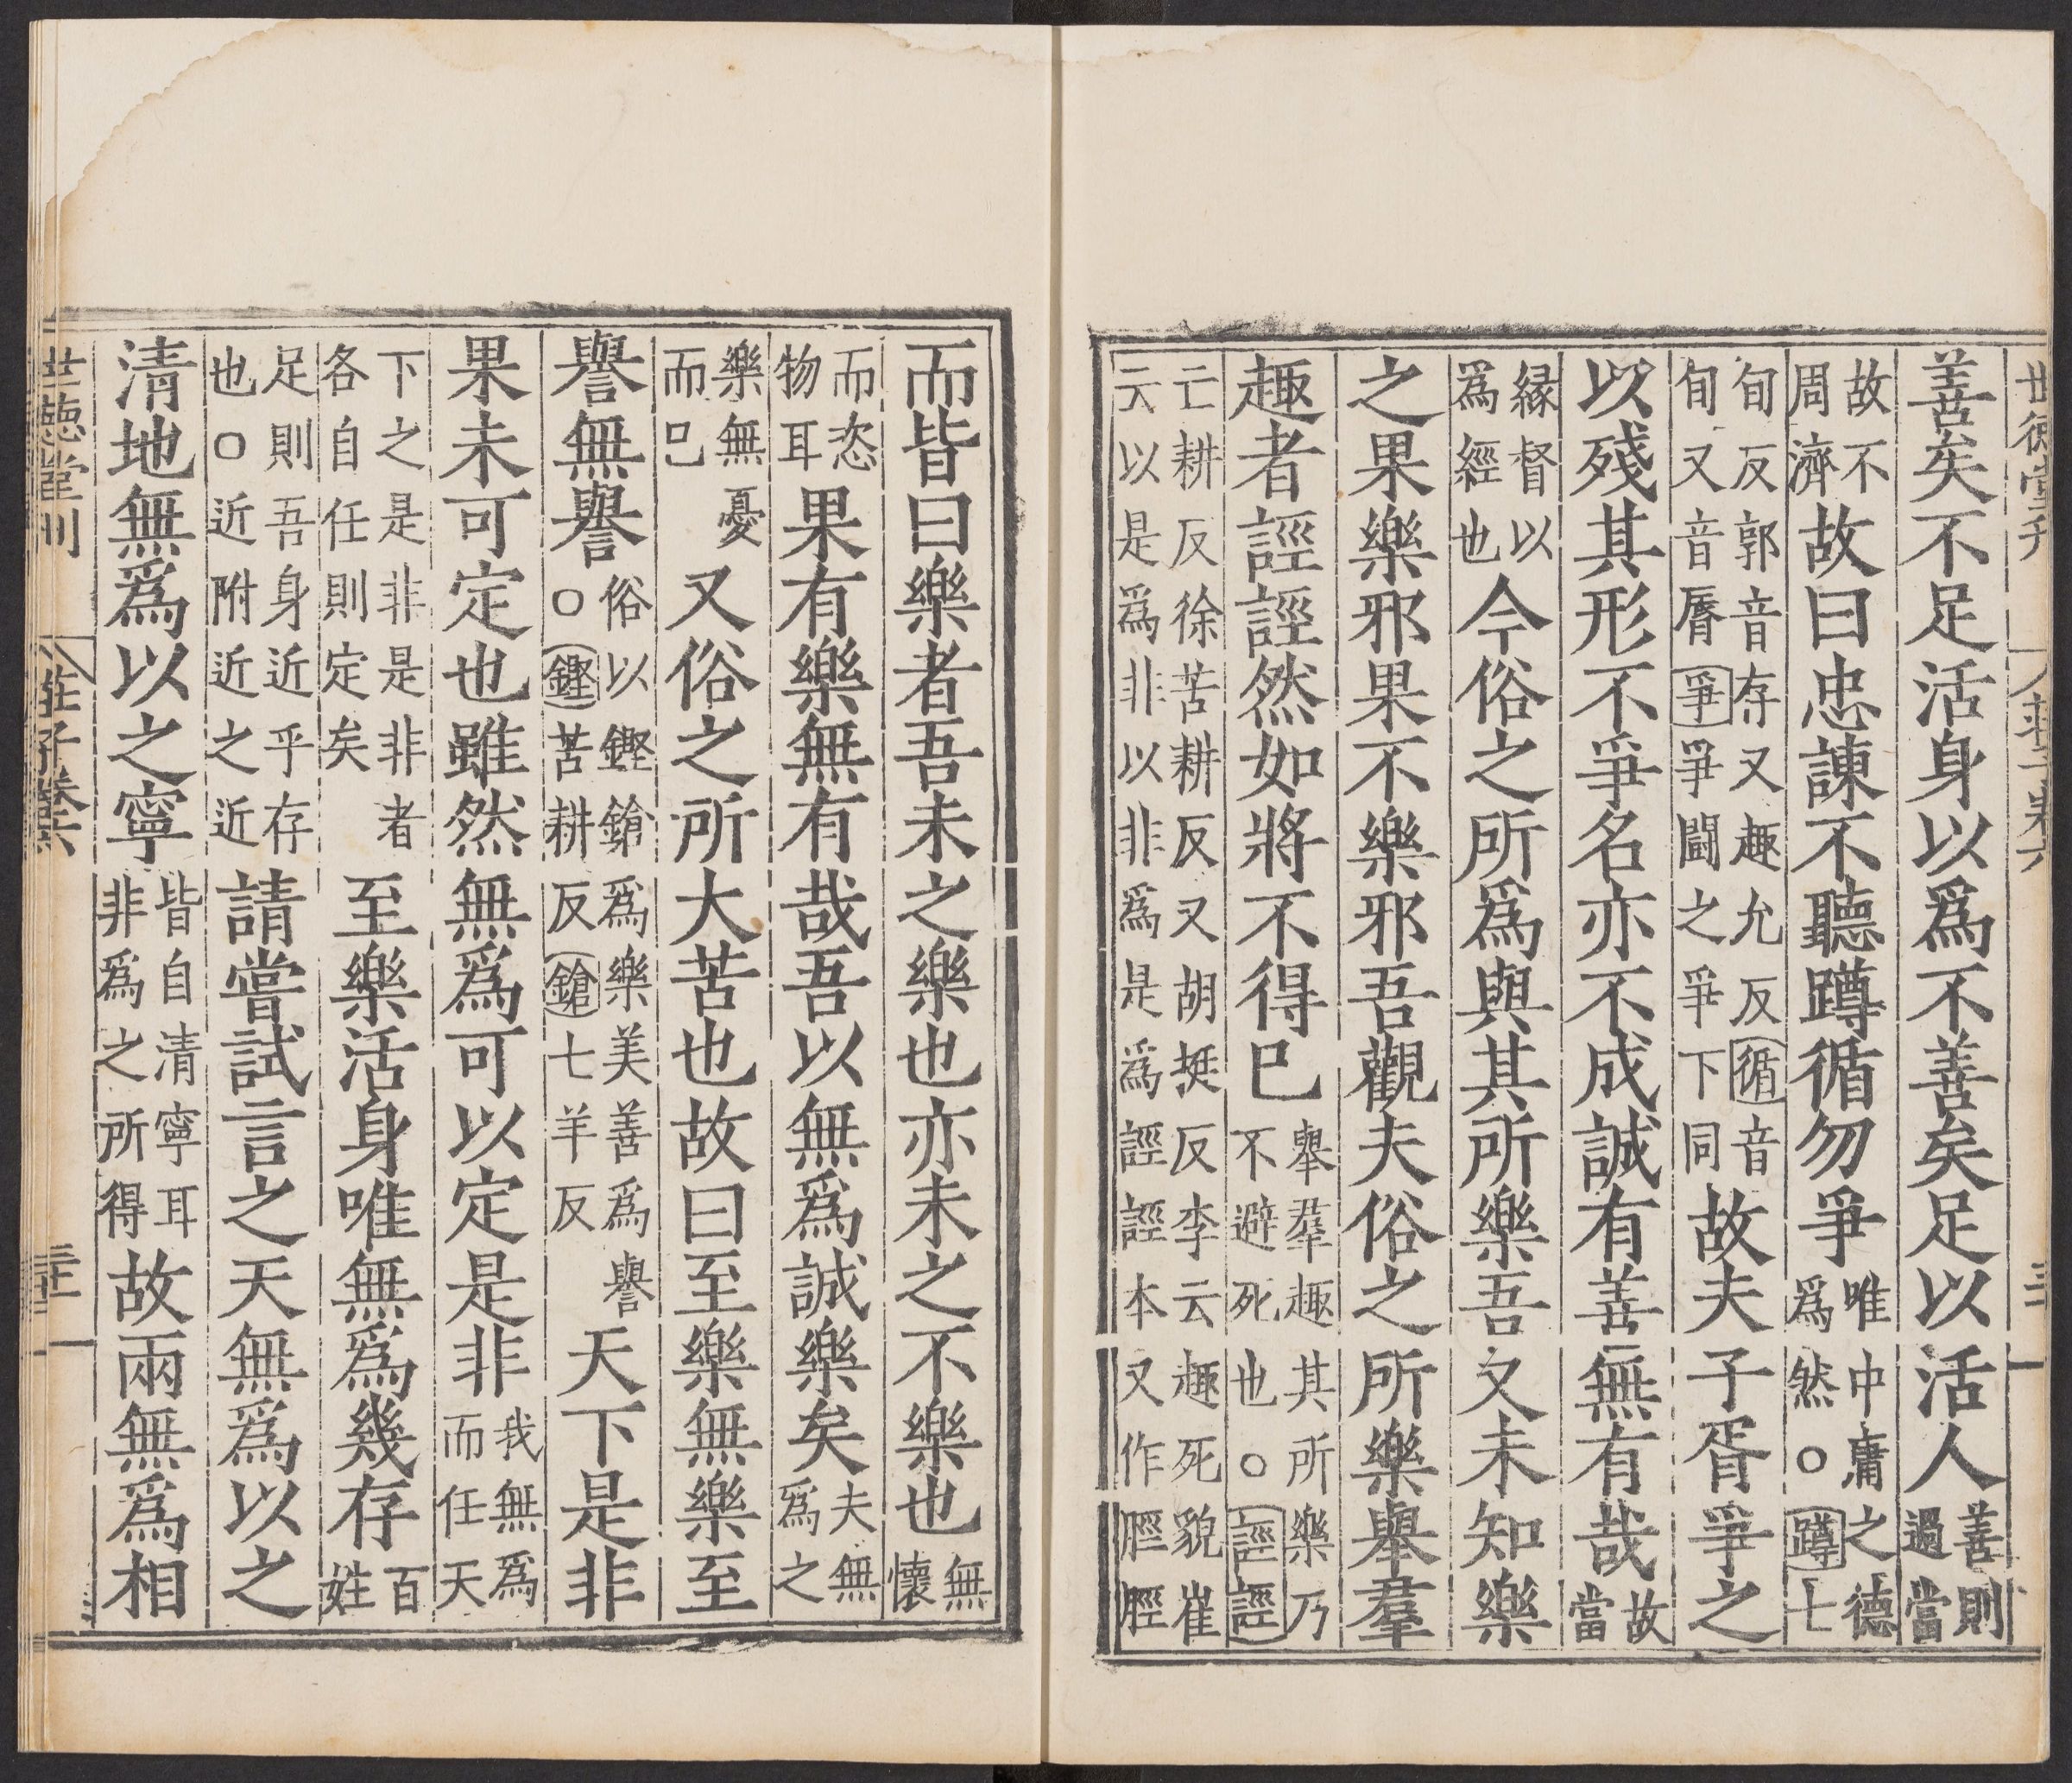 世德堂刊 莊子卷六 三十
善矣不足活身以爲不善矣足以活人善則過當
故不周濟故曰忠諫不聽蹲循勿爭唯中庸之德爲然○蹲七
旬反郭音存又趣允反循音旬又音脣爭爭鬭之爭下同故夫子胥爭之
以殘其形不爭名亦不成誠有善無有哉故當
縁督以爲經也今俗之所爲與其所樂吾又未知樂
之果樂邪果不樂邪吾觀夫俗之所樂舉羣
趣者誙誙然如將不得已舉羣趣其所樂乃不避死也○誙誙
亡耕反徐苦耕反又胡挺反李云趣死貌崔云以是爲非以非爲是爲誙誙本又作脛脛
而皆曰樂者吾未之樂也亦未之不樂也無懷
而恣物耳果有樂無有哉吾以無爲誠樂矣夫無爲之
樂無憂而已又俗之所大苦也故曰至樂無樂至
譽無譽俗以鏗鎗爲樂美善爲譽○鏗苦耕反鎗七羊反天下是非
果未可定也雖然無爲可以定是非我無爲而任天
下之是非是非者各自任則定矣至樂活身唯無爲幾存百姓
足則吾身近乎存也○近附近之近請嘗試言之天無爲以之
清地無爲以之寧皆自清寧耳非爲之所得故兩無爲相
世德堂刊 莊子卷六 三十一